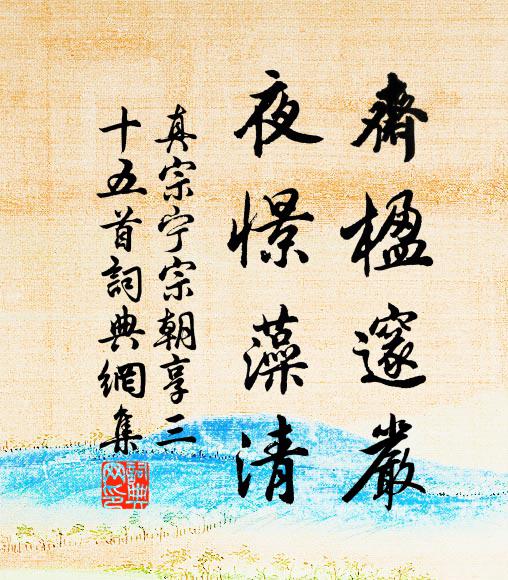 齋楹邃嚴
夜憬藻清
真宗宁宗朝享三
十五首詞典網集